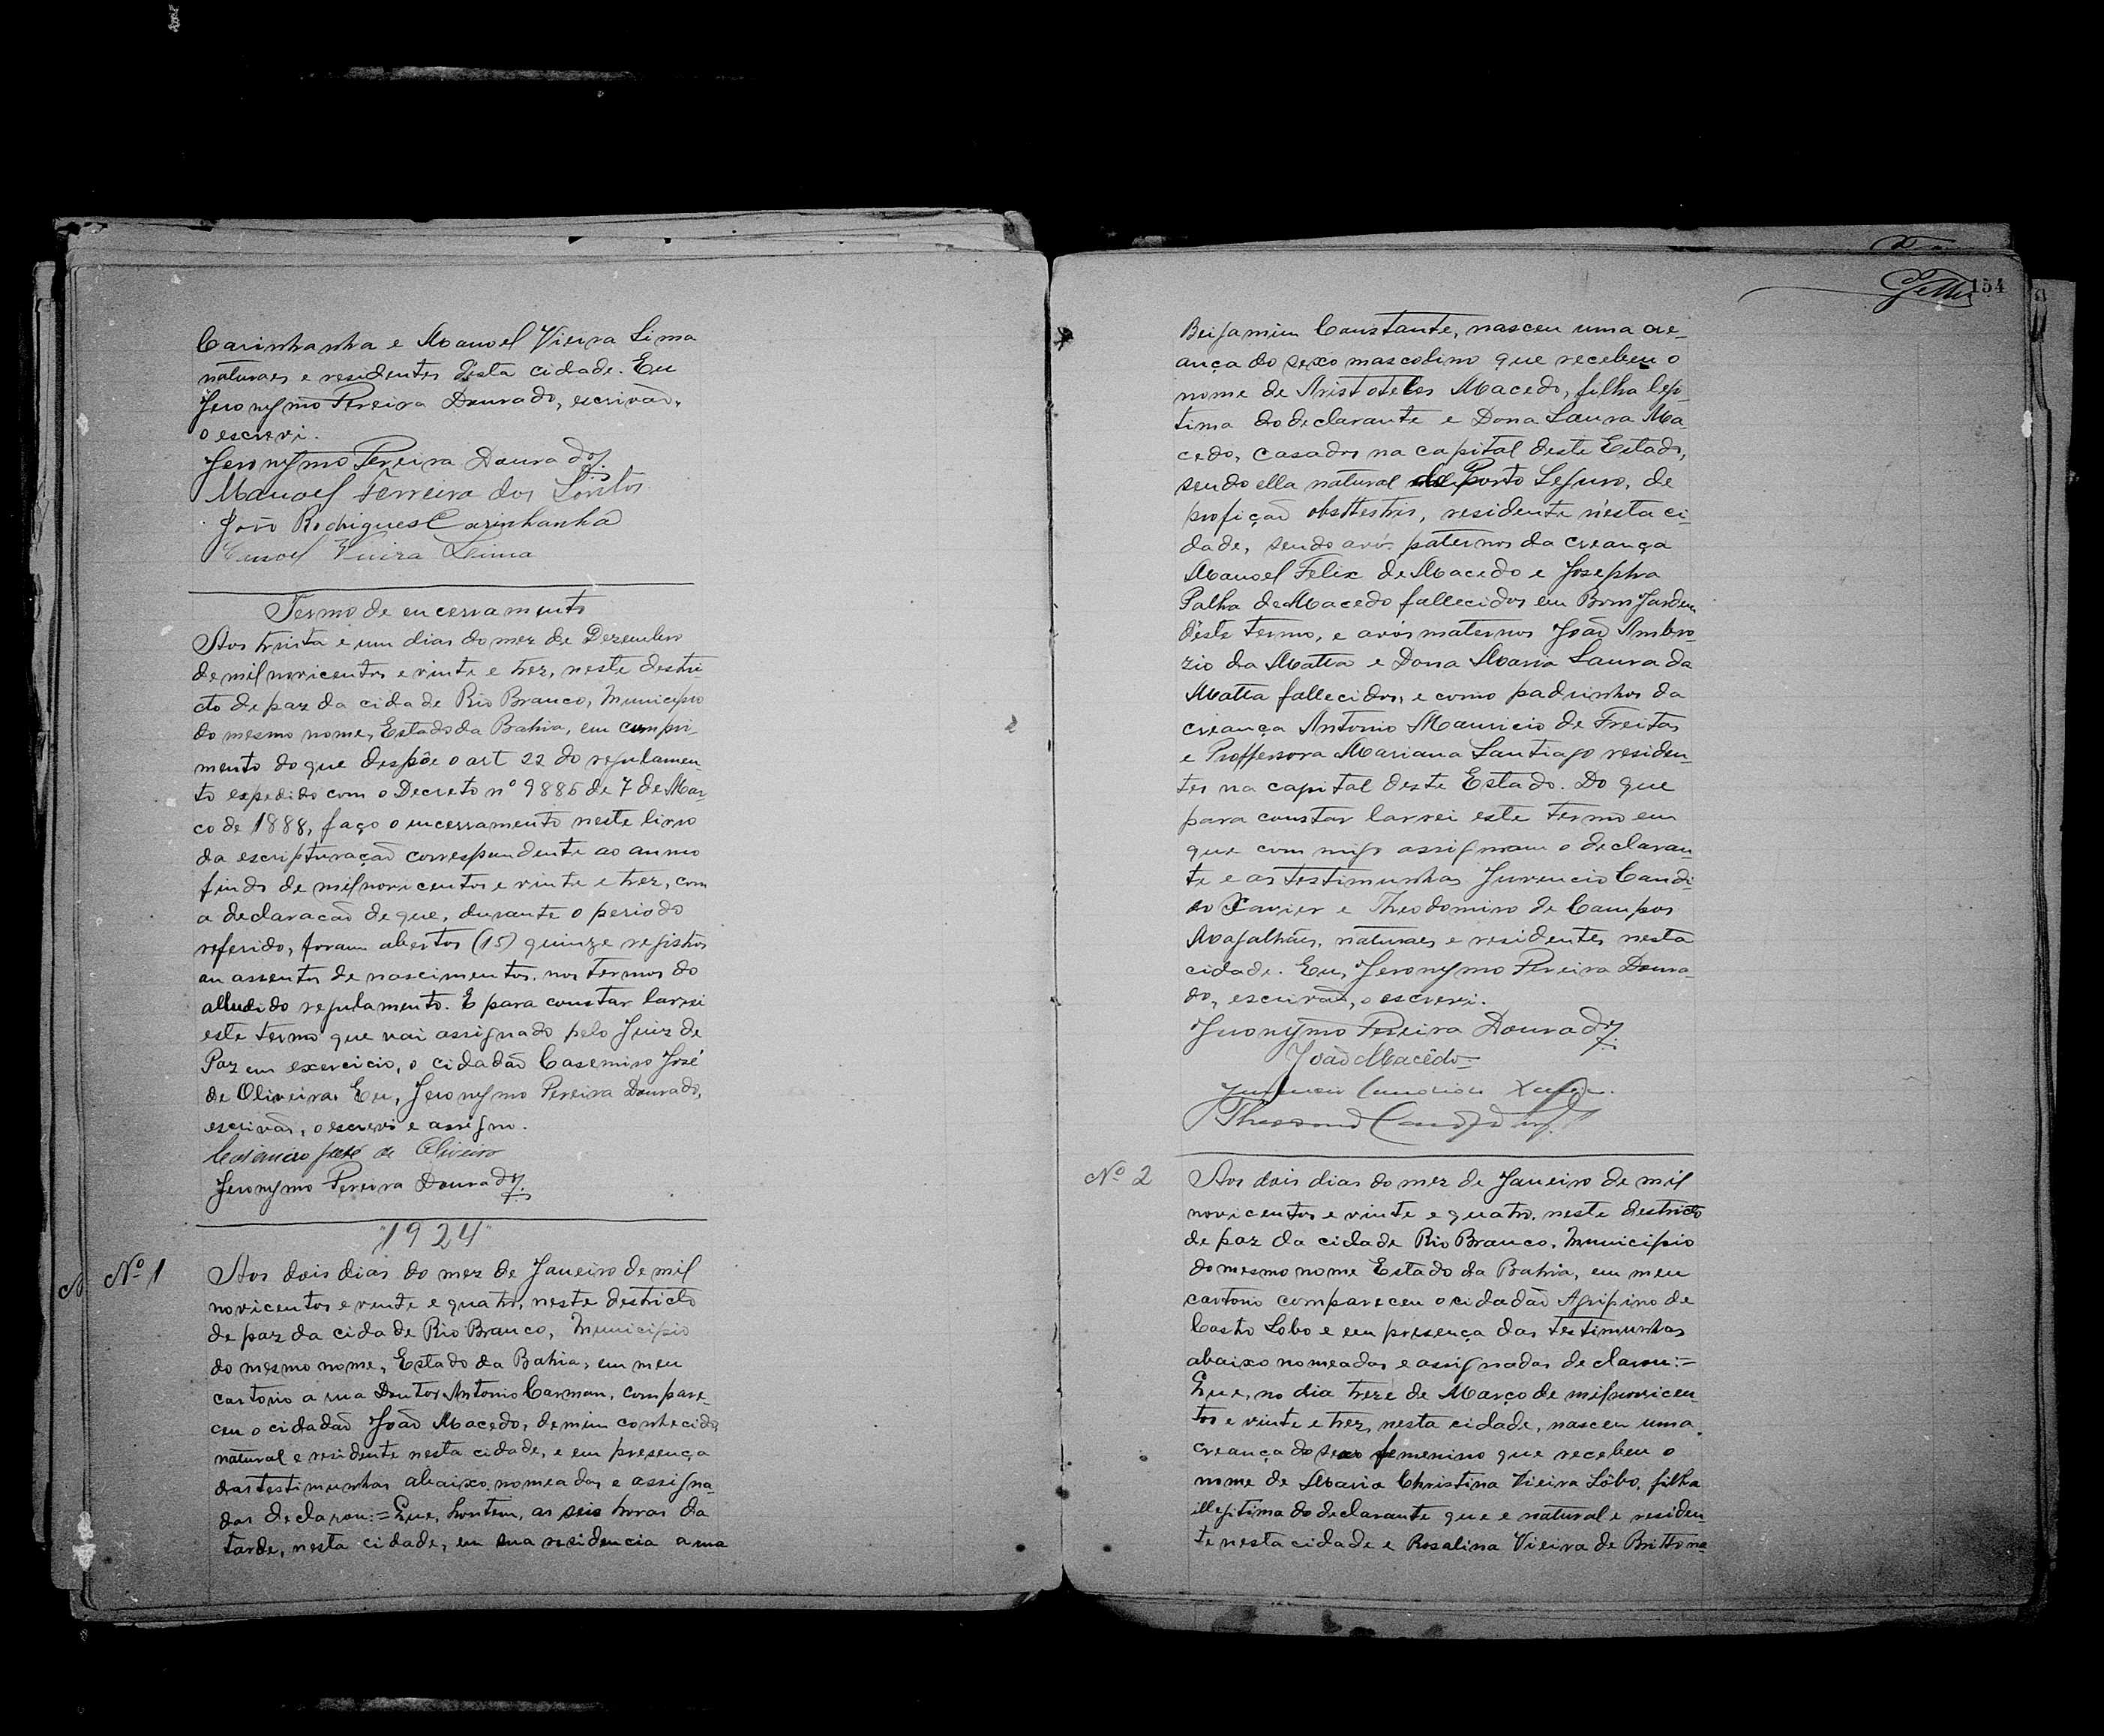 Carinhanha e Manoel Vieira Lima
naturaes e residentes désta cidade. Eu
Jeronymo Pereira Dourado, escrivão,
o escrevi.
Jeronymo Pereira Dourado
Manoel Ferreira dos Santos
João Rodrigues Carinhanha
Vieira Leima
Termo de encerramento
Aos trinta e um dias do mez de Dezembro
de mil novicentos e vinte e trez, neste destri
cto de paz da cidade Rio Branco, Municipio
do mesmo nome, Estado da Bahia, em cumpri-
mento do que despõe o art 22 do regulamen-
to expedido com o Decreto nº 9886 de 7 de Mar-
co de 1888, faço o encerramento neste livro
da escripturação correspundente ao anno
findo de mil novicentos e vinte e trez, com
a declaracão de que, durante o periodo
referido, foram abertos (15) quinze registros
ou assentos de nascimentos, nos termos do
alludido regulamento. E para constar larrei
este termo que vai assignado pelo Juiz de
Paz em exercicio, o cidadão Casemiro José
de Oliveira. Eu, Jeronymo Pereira Dourado,
escrivão, o escrevi e assigno.
Casimiro José de Oliveira
Jeronymo Pereira Dourado
"1924"
Nº 1
Aos dois dias do mez de Janeiro de mil
novicentos e vinte e quatro, neste destricto
de paz da cidade Rio Branco, Municipio
do mesmo nome, Estado da Bahia, em meu
cartorio a rua Doutor Antonio Carman, compare-
ceu o cidadão João Macedo, de mim conhecido,
natural e residente nesta cidade, e em presença
das testimunhas abaixo nomeadas e assigna-
das declarou:= Que, hontem, as seis horas da
tarde, nesta cidade, em sua residencia a rua
154
Beijamim Constante, nasceu uma cre-
ança do sexo mascolino que recebeu o
nome de Aristoteles Macedo, filha legi-
tima do declarante e Dona Laura Ma
cedo, casados na capital deste Estado,
sendo ella natural de Porto Seguro, de
profição obsttestris, residente n'esta ci-
dade, sendo avós paternos da creança
Manoel Felix de Macedo e Josepha
Palha de Macedo fallecidos em Bom Jardem
déste termo, e avós maternos João Ambro-
zio da Matta e Dona Maria Laura da
Matta fallecidos, e como padrinhos da
creança Antonio Mauricio de Freitas
e Proffessora Mariana Santiago residen-
tes na capital deste Estado. Do que
para constar larrei este termo em
que com migo assignam o declaran-
te e as testimunhas Juvencio Candi-
do Xavier e Theodomiro de Campos
Magalhães, naturaes e residentes nesta
cidade. Eu, Jeronymo Pereira Doura-
do, escrivão, o escrevi.
Jeronymo Pereira Dourado
João Macêdo
Juvencio Candido Xavier
Nº 2
Aos dois dias do mez de Janeiro de mil
novicentos e vinte e quatro, neste destricto
de paz da cidade Rio Branco, Municipio
do mesmo nome Estado da Bahia, em meu
cartorio compareceu o cidadão Agripino de
Castro Lobo e em presença das testimunhas
abaixo nomeadas e assignadas declarou:=
Que, no dia treze de Março de mil novicen-
tos e vinte e trez, nesta cidade, nasceu uma
creança do sexo femenino que recebeu o
nome de Maria Christina Vieira Lôbo, filha
illegitima do declarante que e natural e residen-
te nesta cidade e Rosalina Vieira de Britto na-